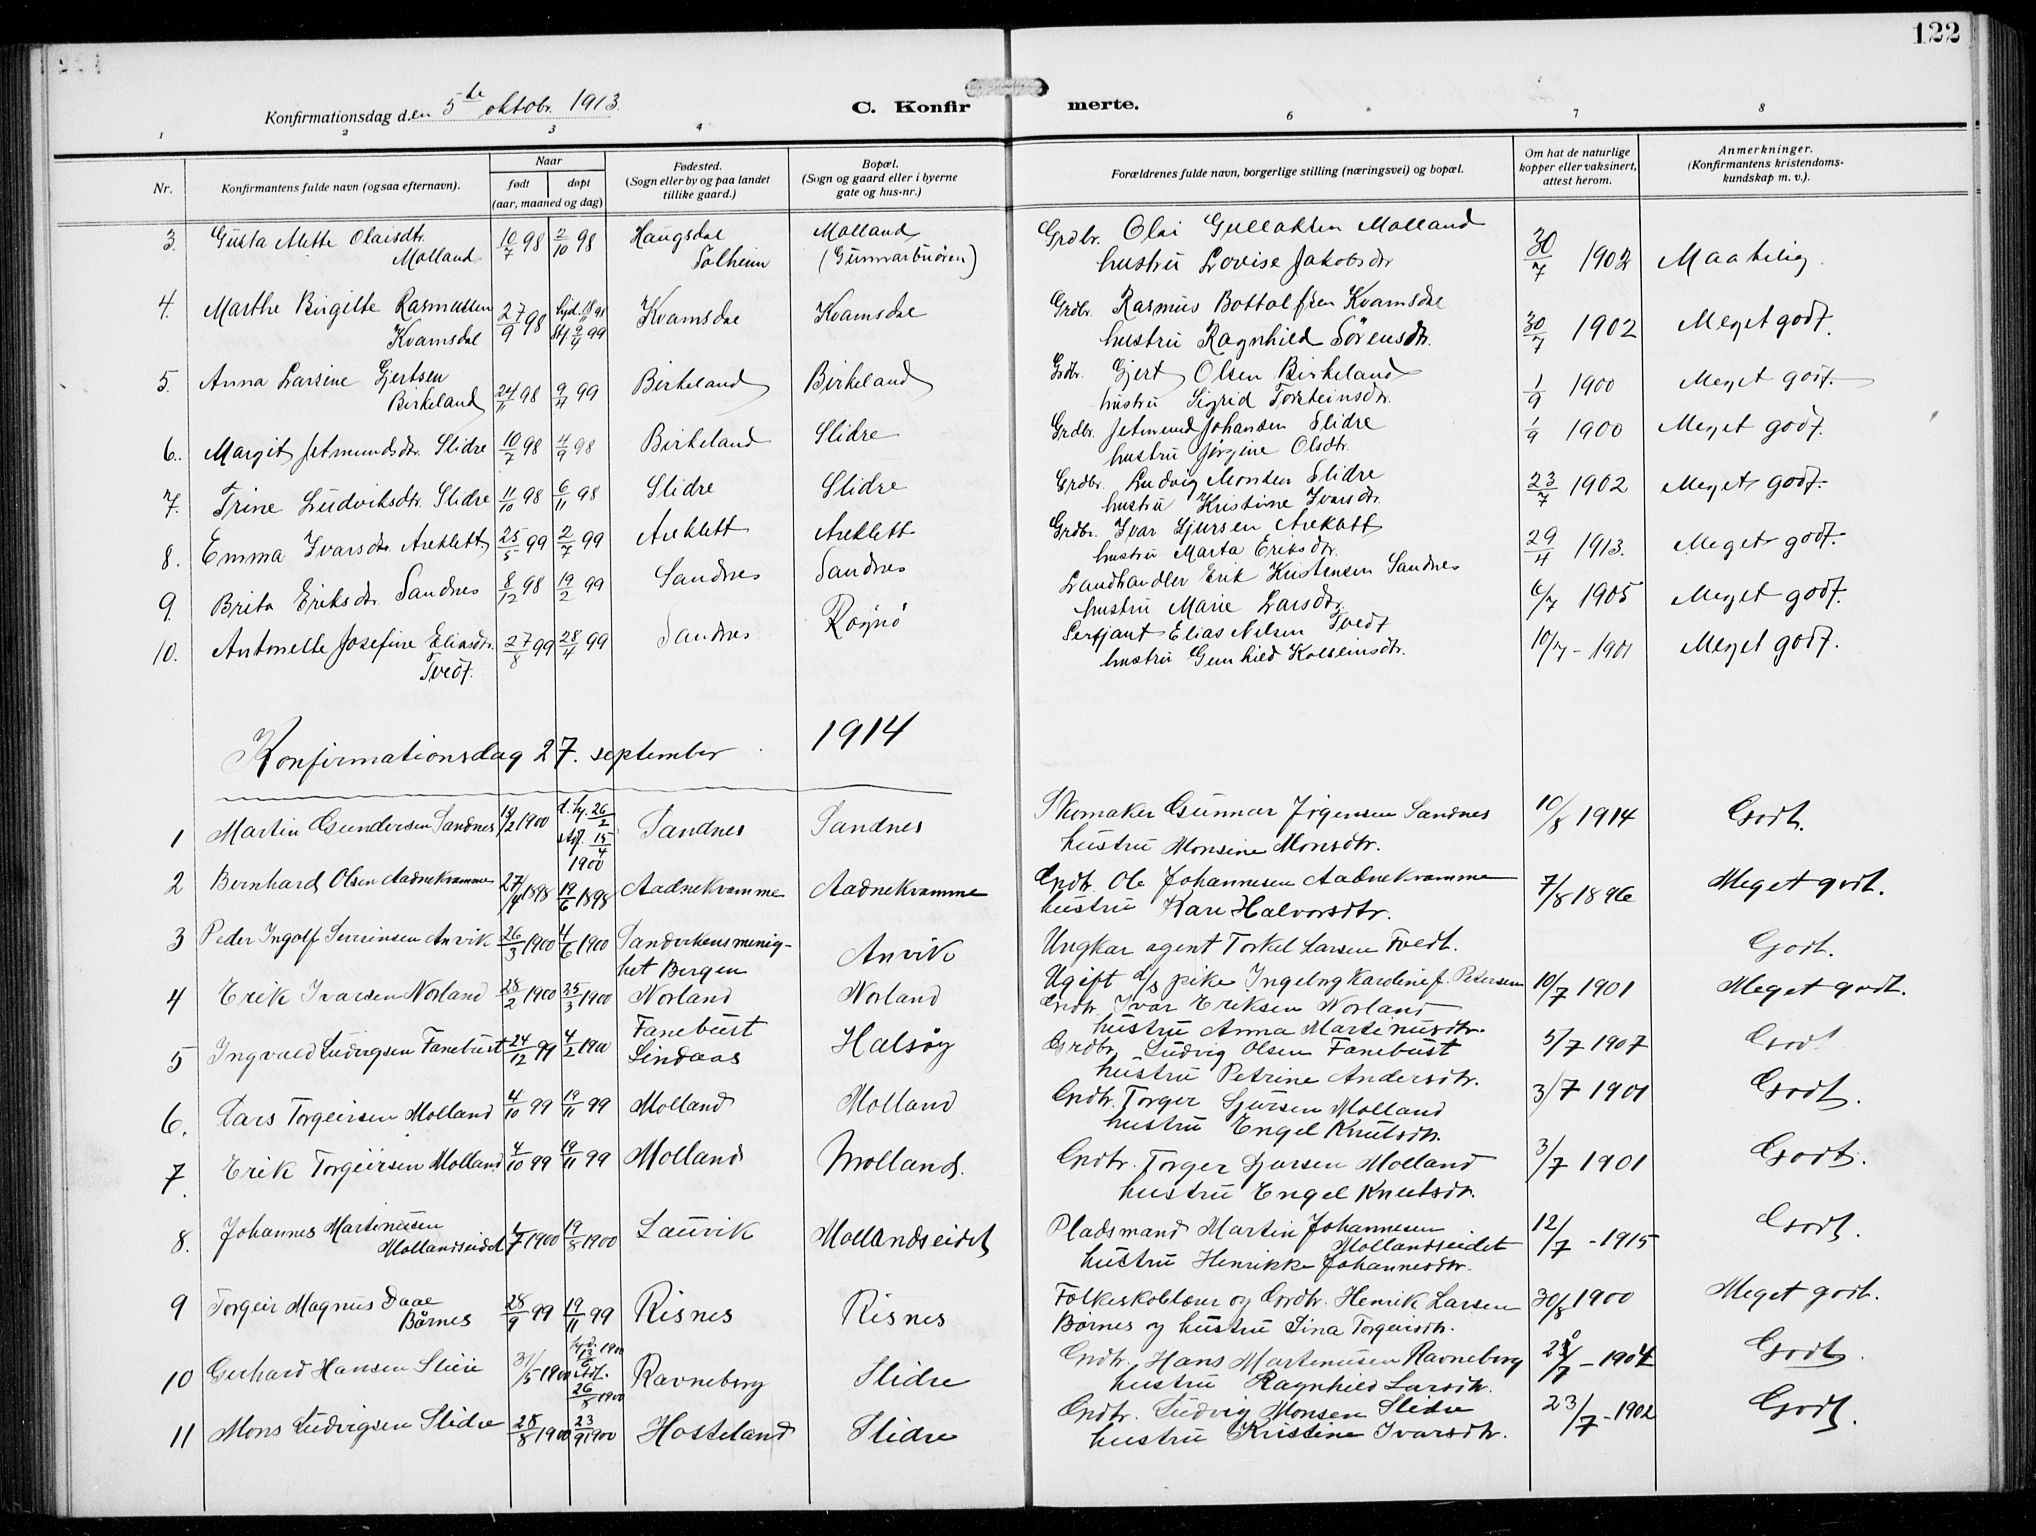 122
Konfirmationsdag den 5te oktobr. 1913.
C. Konfirmerte.
1 2 3 4 6 7 8
Nr.
Konfirmantens fulde navn (ogsaa efternavn).
Naar
født døpt
(aar, maaned og dag)
Fødested.
(Sogn eller by og paa landet
tillike gaard.)
Bopæl.
(Sogn og gaard eller i byerne
gate og hus-nr.)
Forældrenes fulde navn, borgerlige stilling (næringsvei) og bopæl.
Om hat de naturlige
kopper eller vaksinert,
attest herom.
Anmerkninger.
(Konfirmantens kristendoms-
kundskap m. v.).
3. Gusta Mette Olaisdtr. 10/7 98 2/10 98 Haugsdal Molland Grdbr. Olai Gullaksen Molland 30/7 1902 Maatelig.
Molland Solheim (Gunnarbuøren) hustru Lovise Jakobsdtr
4. Marthe Birgitte Rasmussen 27/9 98 Kvamsdal Kvamsdal Grdbr. Rasmus Bottolfsen Kvamsdal 30/7 1902 Meget godt.
Kvamsdal 2/4 99 hustru Ragnhild Sørensdtr.
5. Anna Larsine Gjertsen 24/11 98 9/4 99 Birkeland Birkeland Grdbr. Gjert Olsen Birkeland 1/9 1900 Meget godt.
Birkeland hustru Sigrid Torsteinsdtr.
6. Margit Jetmundsdtr. Slidre 10/7 98 4/9 98 Birkeland Slidre Grdbr. Jetmund Johansen Slidre 1/9 1900 Meget godt.
hustru Jørgine Olsdtr.
7. Trine Ludviksdtr. Slidre 11/10 98 6/11 98 Slidre Slidre Grdbr. Ludvig Monsen Slidre 23/7 1902 Meget godt.
hustru Kristine Ivarsdtr.
8. Emma Ivarsdtr. Areklett 25/5 99 2/7 99 Areklett Areklett Grdbr. Ivar Sjursen Areklett 29/4 1913. Meget godt.
hustru Marta Eriksdtr.
9. Brita Eriksdtr. Sandnes 8/12 98 19/2 99 Sandnes Sandnes Landhandler Erik Kristensen Sandnes 6/7 1905 Meget godt.
hustru Marie Larsdtr.
10. Antonette Josefine Eliasdtr. 27/8 99 28/4 99 Sandnes Rognø Sersjant Elias Nilsen Tvedt 10/7 - 1901 Meget godt.
Tvedt. hustru Gunhild Kolbeinsdtr.
Konfirmationsdag 27. september 1914
1 Martin Gundersen Sandnes 19/2 1900 d. hj. 26/2 Sandnes Sandnes Skomaker Gunnar Jørgensen Sandnes 10/8 1914 Godt.
stf. 15/4 1900 hustru Monsine Monsdtr.
2 Bernhard Olsen Aadnekvamme 27/4 1898 19/6 1898 Aadnekvamme Aadnekvamme Grdbr. Ole Johannesen Aadnekvamme 7/8 1896 Meget godt.
hustru Kari Halvorsdtr.
3 Peder Ingolf Severinsen Anvik 26/3 1900 4/6 1900 Sandvikens menig- Anvik Ungkar agent Torkel Larsen Tvedt. Godt.
het Bergen Ugift d/s pike Ingeborg Karoline J. Petersen
4 Erik Ivarsen Norland 28/2 1900 25/3 1900 Norland Norland Grdbr. Ivar Eriksen Norland 10/7 1901 Meget godt.
hustru Anna Martinusdtr.
5 Ingvald Ludvigsen Fanebust 24/12 99 4/2 1900 Fanebust Halsøy Grdbr. Ludvig Olsen Fanebust 5/7 1907 Godt
Lindaas hustru Petrine Andersdtr.
6. Lars Torgeirsen Molland 4/10 99 19/11 99 Molland Molland Grdbr. Torger Sjursen Molland 3/7 1901 Godt.
hustru Engel Knutsdtr.
7. Erik Torgeirsen Molland 4/10 99 19/11 99 Molland Molland. Grdbr. Torger Sjursen Molland 3/7 1901 Godt.
hustru Engel Knutsdtr.
8. Johannes Martinusen /7 1900 19/8 1900 Laurik Mollandseidet Pladsmand Martin Johannesen 12/7 - 1915 Godt.
Mollandseidet Mollandseidet
hustru Henrikke Johannesdtr.
9 Torgeir Magnus Daae 28/9 99 19/11 99 Risnes Risnes Folkeskolelærer og Grdbr. Henrik Larsen 30/8 1900 Meget godt.
Børnes Børnes og hustru Sina Torgeirsdtr.
10 Gerhard Hansen Slire 31/5 1900 hjd. 13/6 1900 Ravneberg Slidre Grdbr. Hans Martinusen Ravneberg /7 - 1904 Godt.
stdf. 26/8 1900 hustru Ragnhild Larsdtr.
11 Mons Ludvigsen Slidre 28/8 1900 23/9 1900 Hosteland Slidre Grdbr. Ludvig Monsen Slidre 23/7 - 1902 Godt.
hustru Kristine Ivarsdtr.